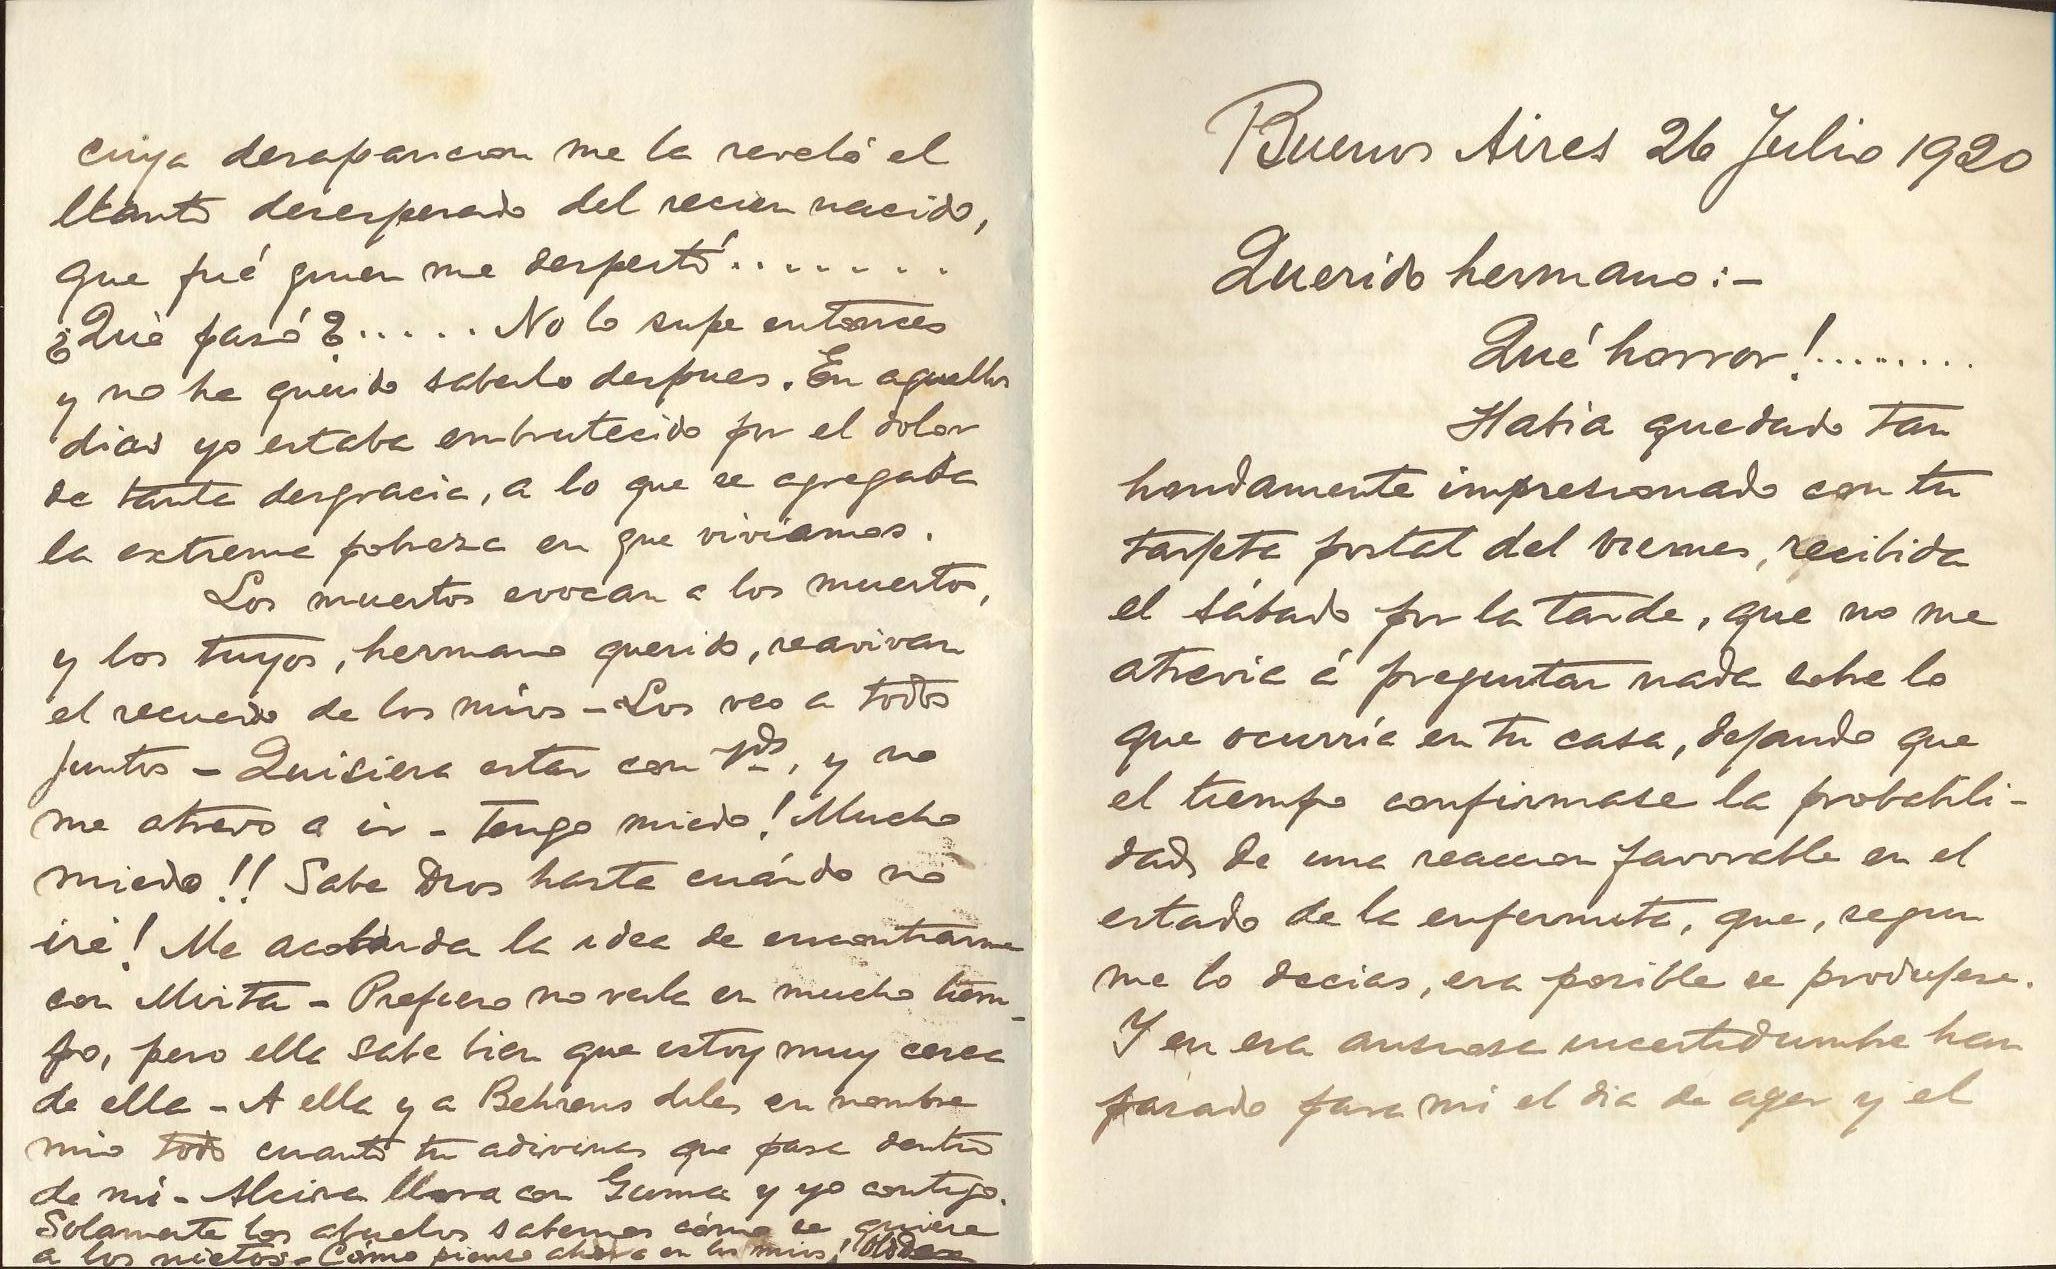 cuya desaparicion me la reveló el
llanto desesperado del recien nacido,
que fué quien me despertó.......
¿Qué pasó?..... No lo supe entonces
y no he querido saberlo despues. En aquellos
dias yo estaba embrutecido por el dolor
de tanta desgracia, a lo que se agregaba
la extrema pobreza en que viviamos.
Los muertos evocan a los muertos,
y los tuyos, hermano querido, reavivan
el recuerdo de los mios - Los veo a todos
juntos - Quisiera estar con Vds, y no
me atrevo a ir - Tengo miedo! Mucho
miedo!! Sabe Dios hasta cuándo no
iré! Me acobarda la idea de encontrarme
con Mirta - Prefiero no verla en mucho tiem-
po, pero ella sabe bien que estoy muy cerca
de ella - A ella y a Behrens diles en nombre
mio todo cuanto tu adivinas que pasa dentro
de mi - Alcira llora con Guma y yo contigo.
Solamente los abuelos sabemos cómo se quiere
a los nietos - Cómo pienso ahora en los mios!
Buenos Aires 26 Julio 1920
Querido hermano:-
Qué horror!........
Habia quedado tan
hondamente impresionado con tu
tarjeta postal del viernes, recibida
el sábado por la tarde, que no me
atrevia á preguntar nada sobre lo
que ocurria en tu casa, dejando que
el tiempo confirmase la probabili-
dad, de una reaccion favorable en el
estado de la enfermita, que, segun
me lo decias, era posible se produjese.
Y en esa ansiosa incertidumbre han
pasado para mi el dia de ayer y el